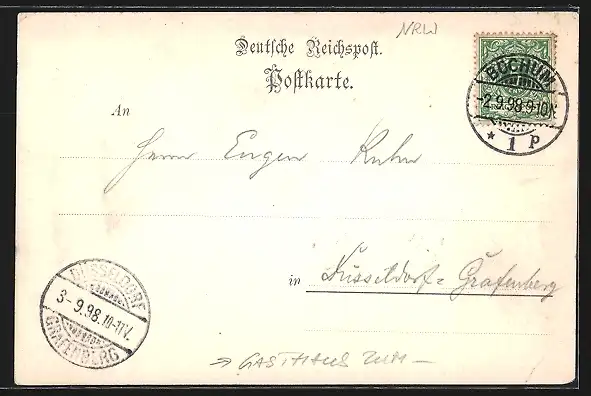 NRW
Deutsche Reichspost.
Postkarte.
BOCHUM
2.9.98.9-10V.
* 1 P
An
Herrn Eugen Kuhn
in Düsseldorf=Grafenberg
DÜSSELDORF
3-9.98.10-11V.
GRAFENBERG
→ GASTHAUS ZUM —